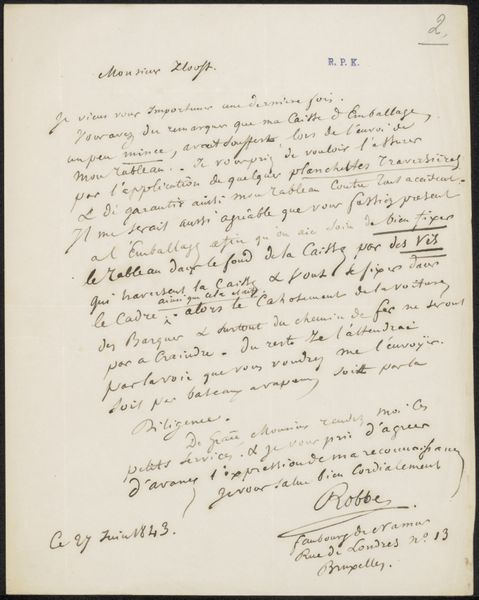 2.
R. P. K.
Monsieur Hooft.
Je viens vous importuner une dernière fois.
Vous avez du remarquer que ma Caisse d'Emballage,
un peu mince, avait soufferte lors de l'envoi de
mon tableau. Je vous prie de vouloir l'assurer
par l'application de quelques planchettes traversières
& di garantir aussi mon tableau contre tout accident.
Il me serait aussi agréable que vous fassiez présent
a l'Emballage afin qu'on aie soin de bien fixer
le tableau dans le fond de la Caisse par des Vis
qui traversent la Caisse & vont se fixer dans
le Cadre alors le Cahotement de la voiture,
ainsi que cela était
des Barques & surtout du chemin de fer ne seront
pas a Craindre. Du reste je l'attendrai
par la voie que vous voudrez me l'envoyer.
soit par bateaux a vapeur soit par la
Diligence.
De Grâce Monsieur rendez moi ces
petits services & je vous prie d'agréer
d'avance l'expression de ma reconnaissance
je vous salue bien Cordialement
Robbe
Ce 27 Juin 1843.
faubourg de Namur
Rue de Londres no 13
Bruxelles.